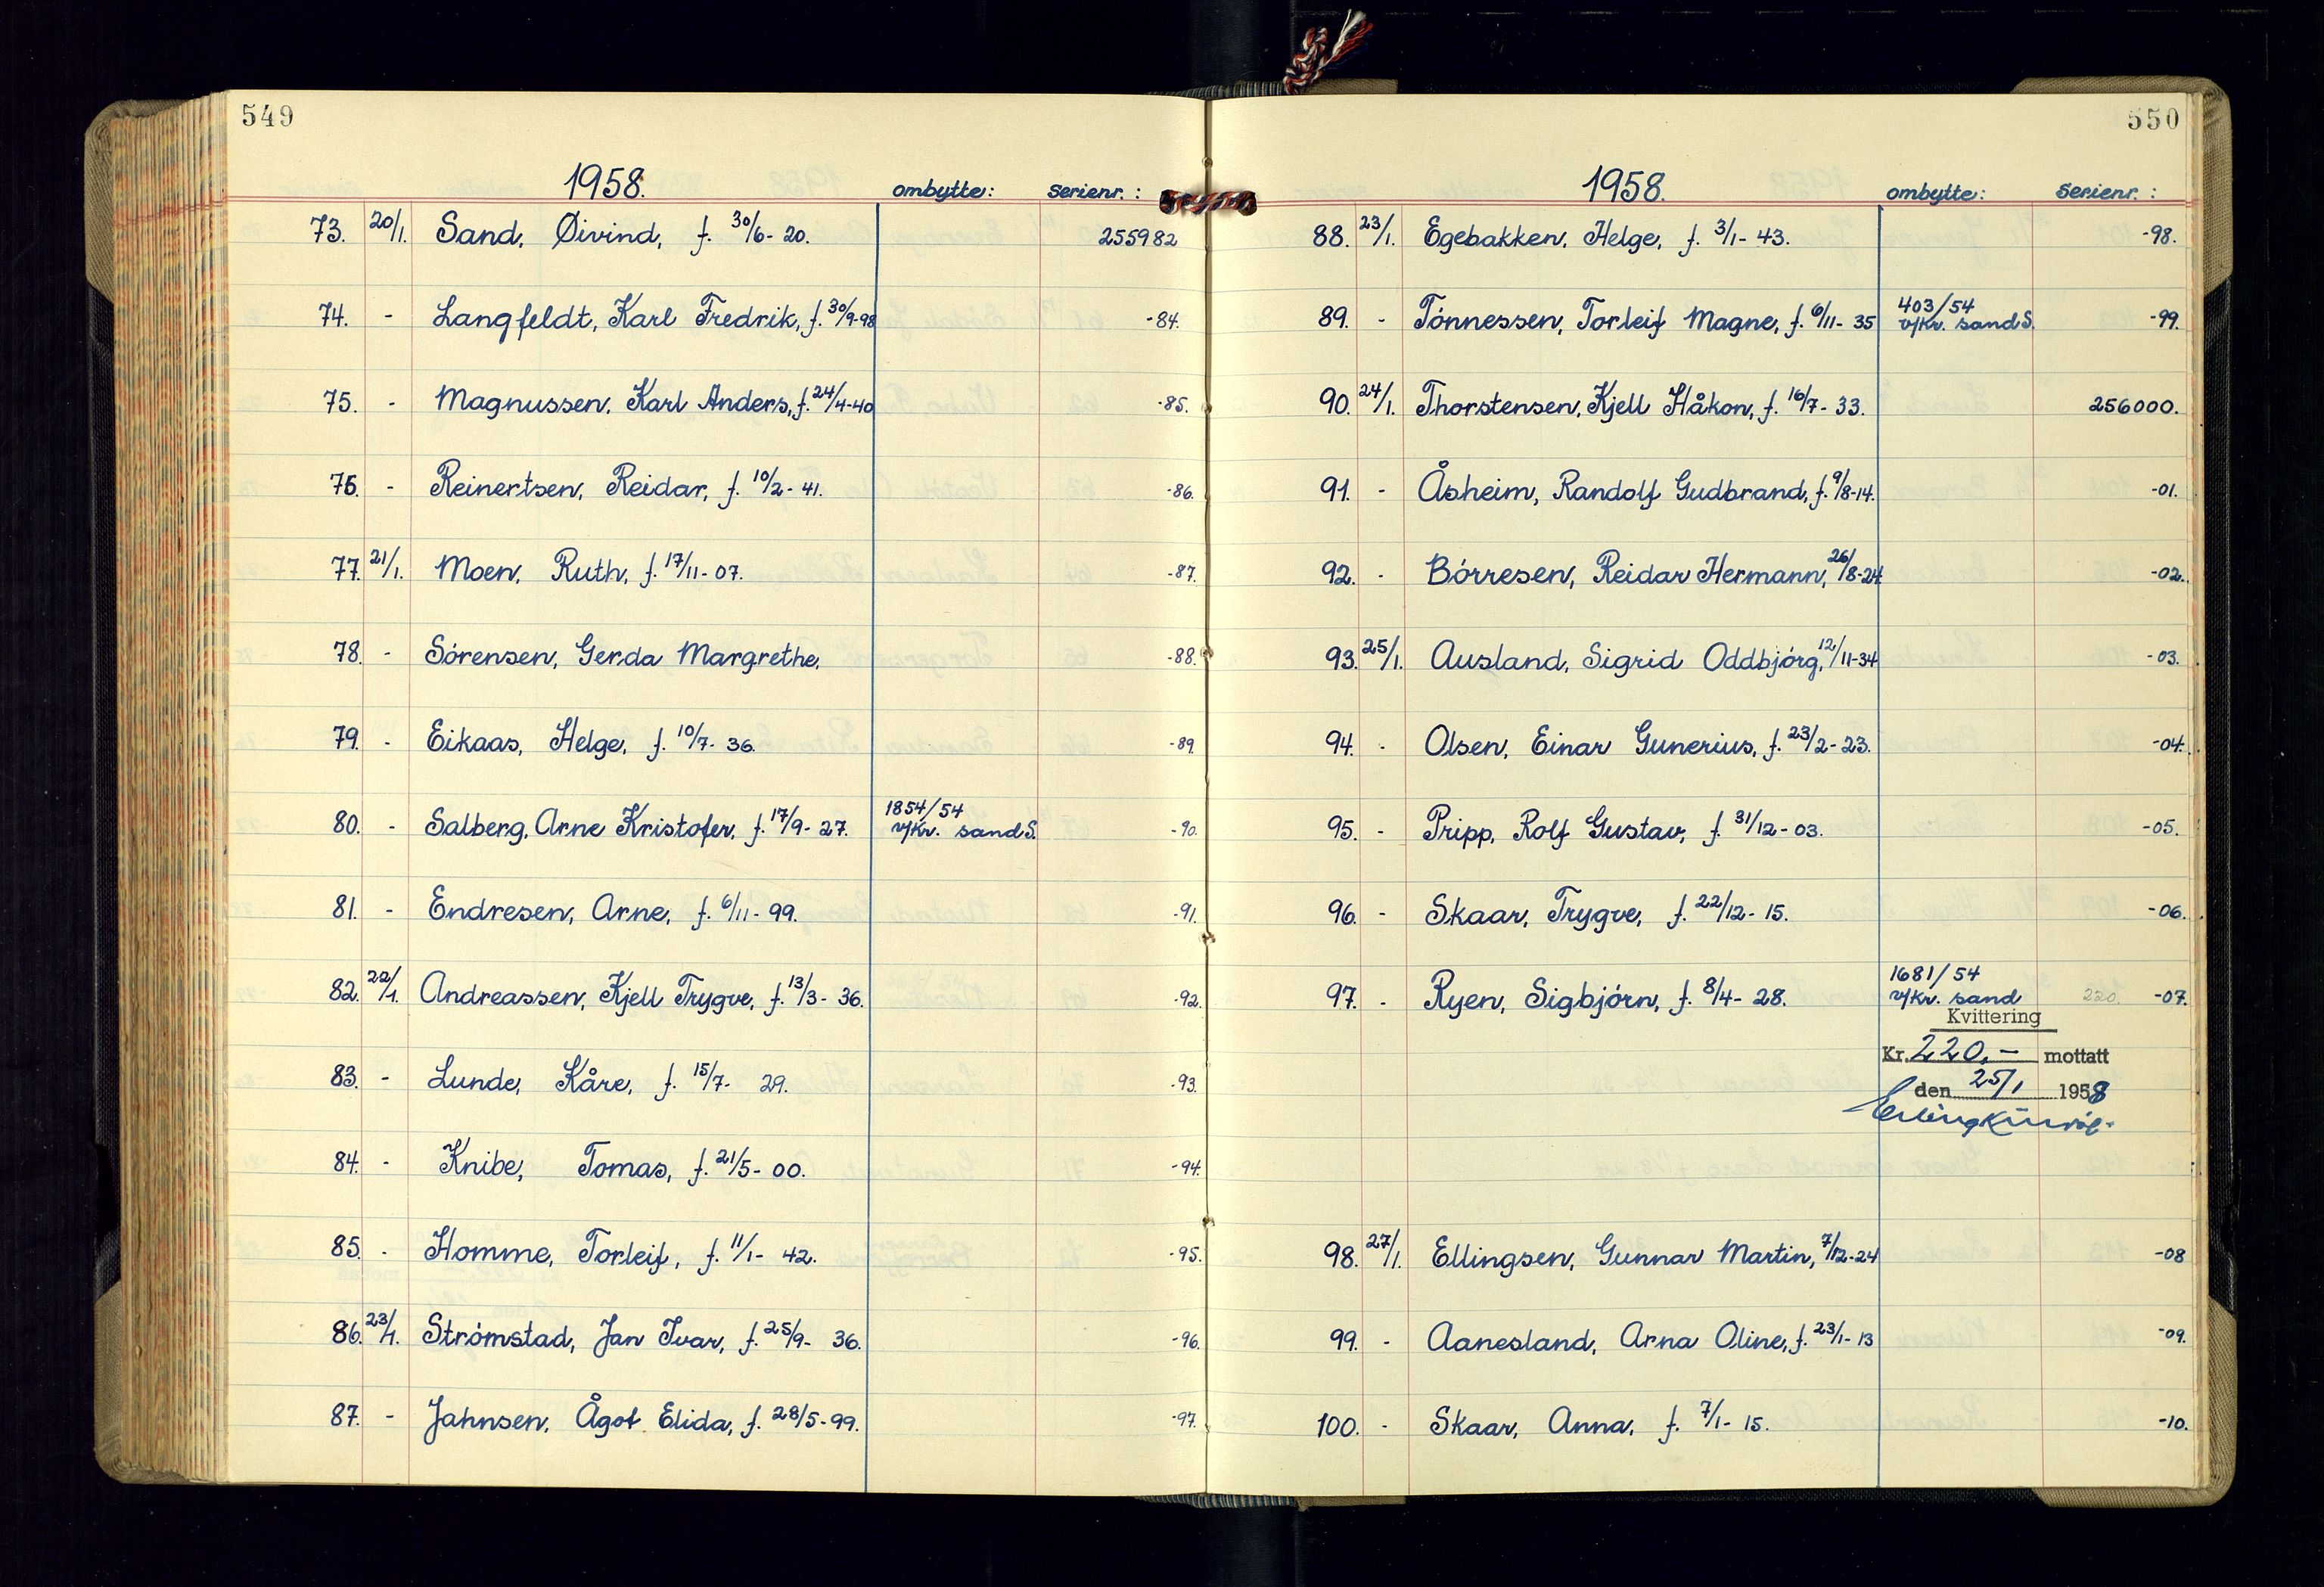 549
1958. ombytte: serienr.:
73. 20/1. Sand, Øivind, f. 30/6-20. 255982
74. - Langfeldt, Karl Fredrik, f. 30/9-98 -84.
75. - Magnussen, Karl Anders, f. 24/4-40 -85.
76. - Reinertsen, Reidar, f. 10/2-41. -86.
77. 21/1. Moen, Ruth, f. 17/11-07. -87.
78. - Sörensen, Gerda Margrethe, -88.
79. - Eikaas, Helge, f. 10/7-36. -89.
80. - Salberg, Arne Kristofer, f. 17/9-27. 1854/54
v/Kr. sand S. -90.
81. - Endresen, Arne, f. 6/11-99. -91.
82. 22/1. Andreassen, Kjell Trygve, f. 13/3-36. -92.
83. - Lunde, Kåre, f. 15/7-29. -93.
84. - Knibe, Tomas, f. 21/5-00. -94.
85. - Homme, Torleif, f. 11/1-42. -95.
86. 23/1. Strömstad, Jan Ivar, f. 25/9-36. -96.
87. - Jahnsen, Ågot Elida, f. 28/5-99. -97.
550
1958. ombytte: serienr.:
88. 23/1. Egebakken, Helge, f. 3/1-43. -98.
89. - Tönnessen, Torleif Magne, f. 6/11-35 403/54
v/Kr. sand S. -99.
90. 24/1. Thorstensen, Kjell Håkon, f. 16/7-33. 256000.
91. - Åsheim, Randolf Gudbrand, f. 9/8-14. -01.
92. - Börresen, Reidar Hermann, 26/8-24 -02.
93. 25/1. Ausland, Sigrid Oddbjörg, 12/11-34 -03.
94. - Olsen, Einar Gunerius, f. 23/2-23. -04.
95. - Pripp, Rolf Gustav, f. 31/12-03. -05.
96. - Skaar, Trygve, f. 22/12-15. -06.
97. - Ryen, Sigbjörn, f. 8/4-28. 1681/54
v/Kr. sand 220. -07.
Kvittering
Kr. 220,- mottatt
den 25/1 1958
98. 27/1. Ellingsen, Gunnar Martin, 7/12-24 -08
99. - Aanesland, Arna Oline, f. 23/1-13 -09.
100. - Skaar, Anna, f. 7/1-15. -10.